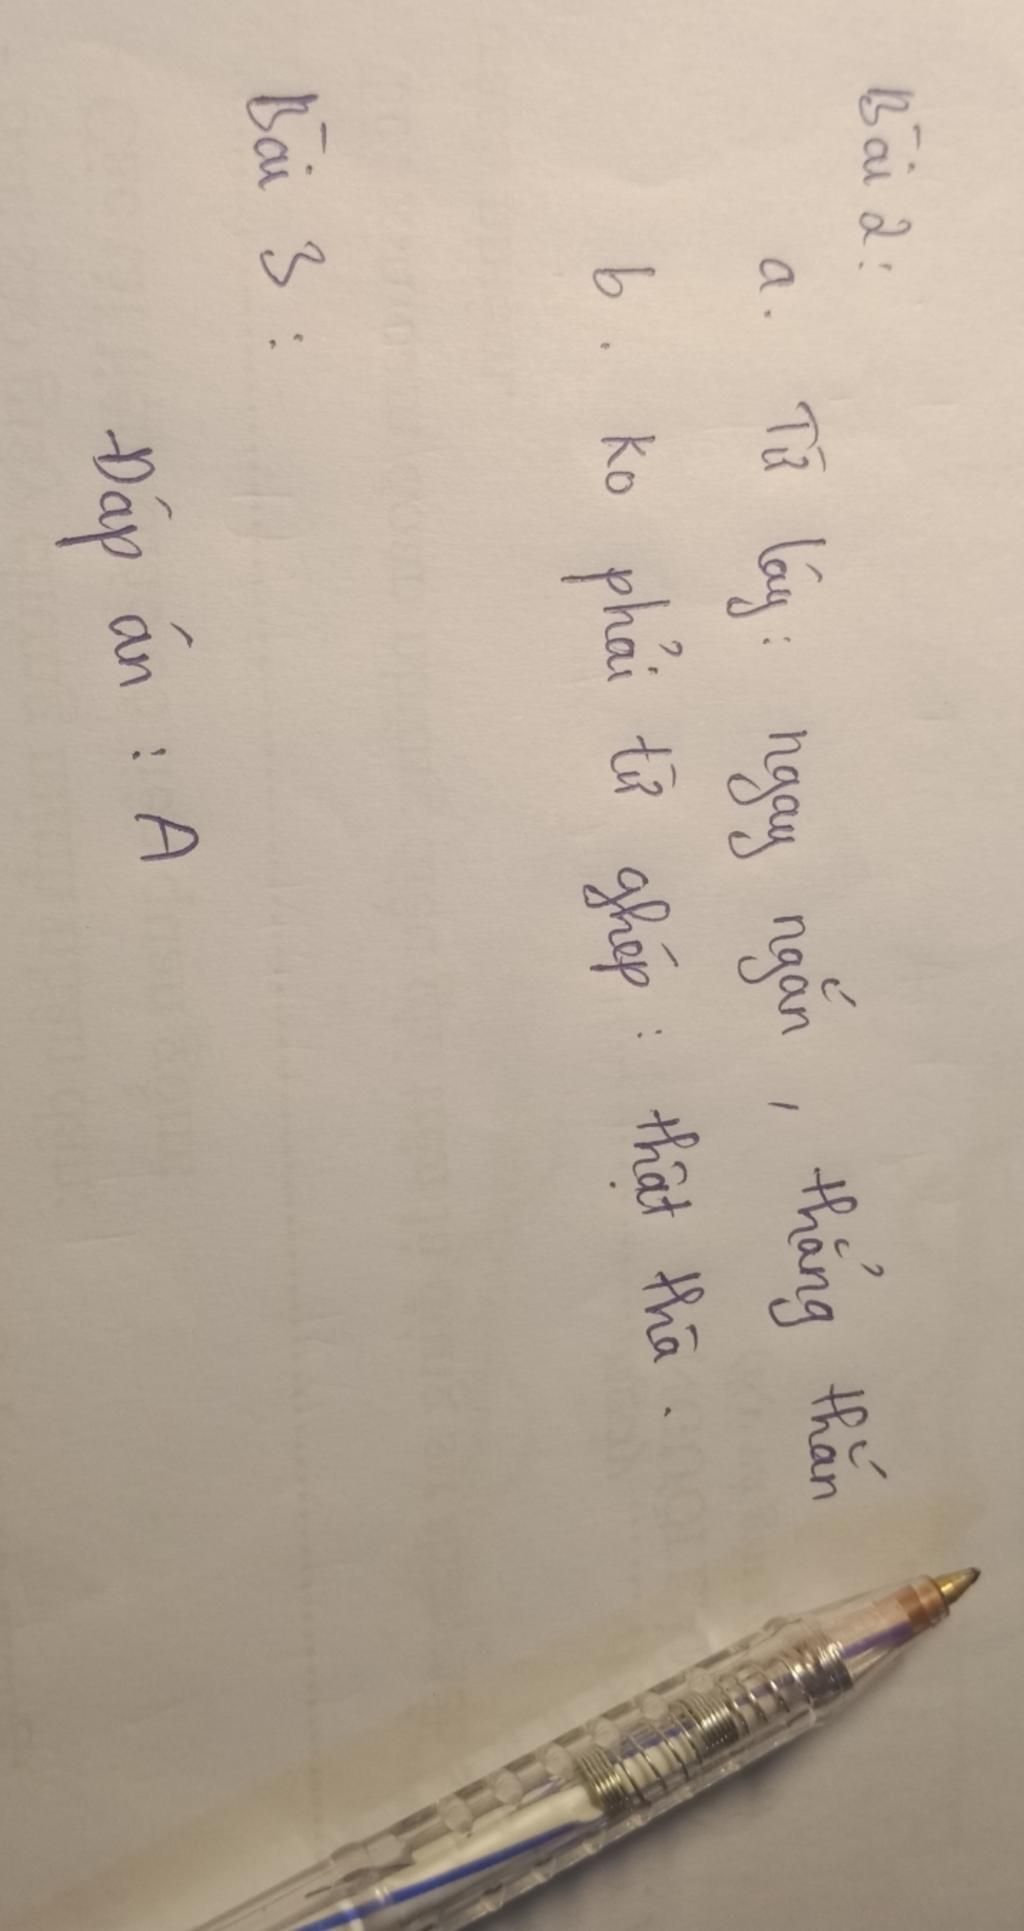 Bài 2:
a. Từ láy: ngay ngắn, thẳng thắn
b. ko phải từ ghép: thật thà.
Bài 3:
Đáp án: A